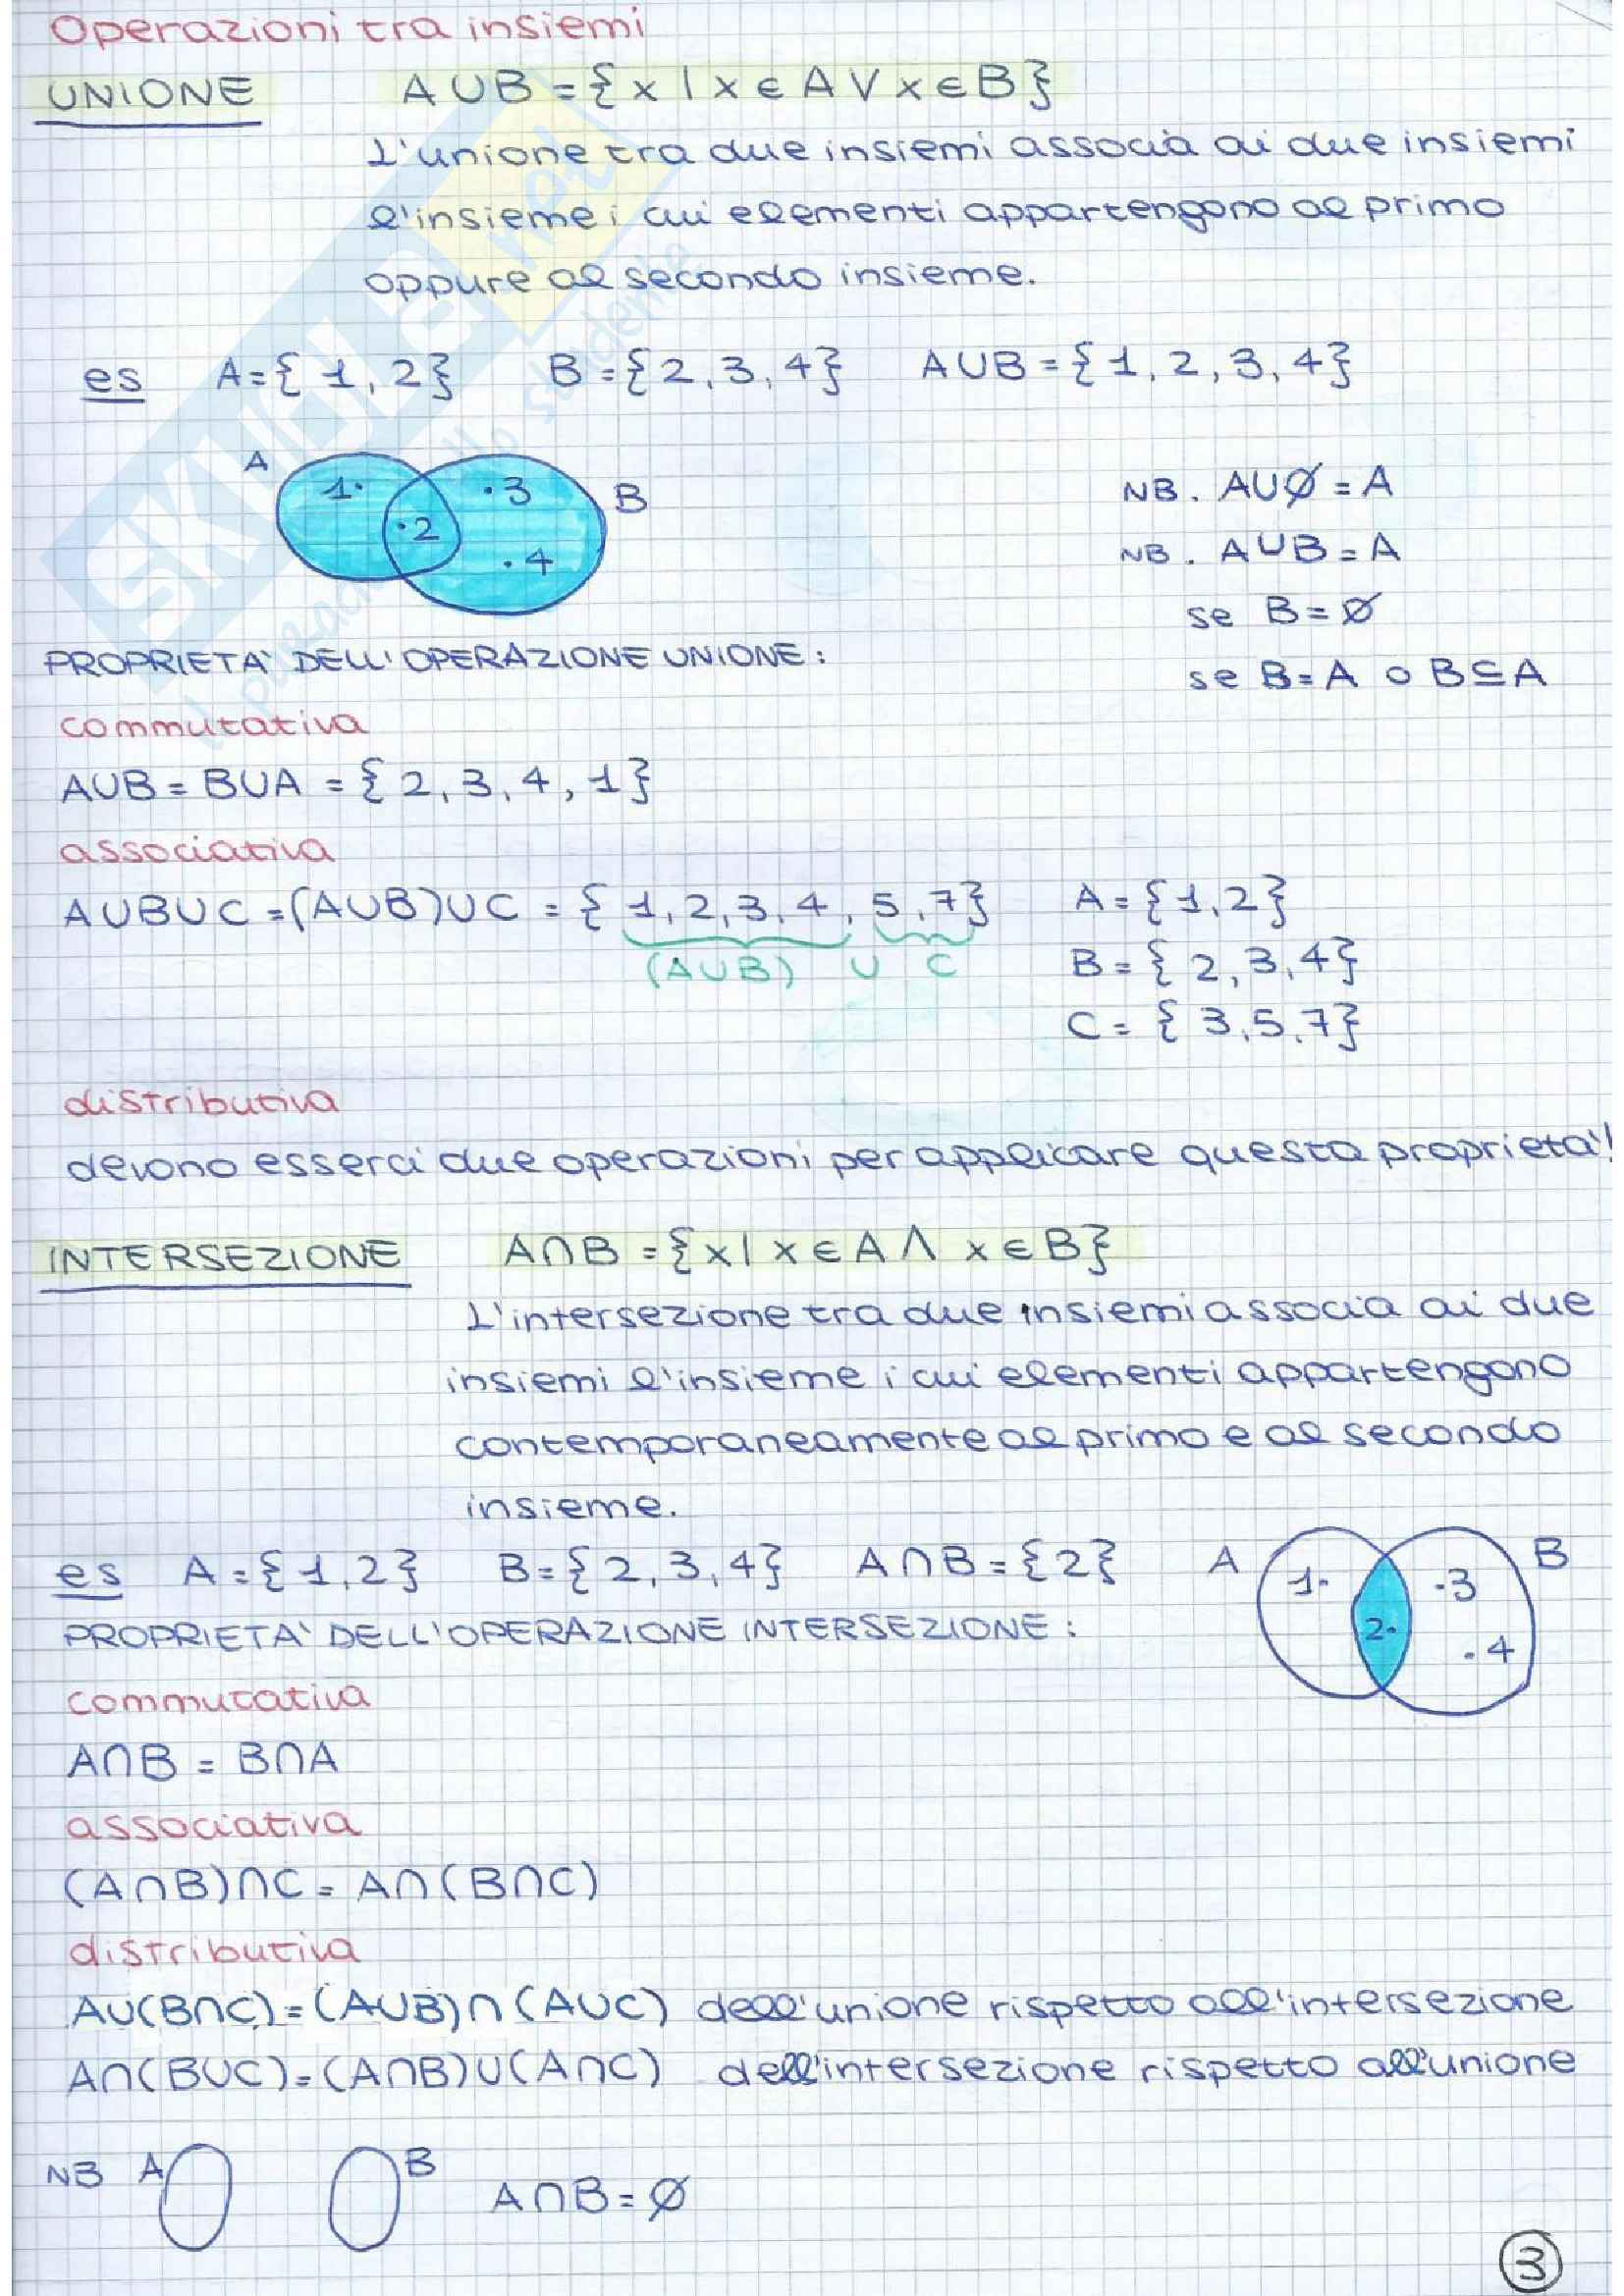 Operazioni tra insiemi
UNIONE A∪B = {x | x ∈ A ∨ x ∈ B}
L'unione tra due insiemi associa ai due insiemi
l'insieme i cui elementi appartengono al primo
oppure al secondo insieme.
es A={1,2} B={2,3,4} A∪B={1,2,3,4}
A 1. .2 .3 .4 B
NB. A∪Ø = A
NB. A∪B = A
se B = Ø
se B = A o B⊆A
PROPRIETA' DELL'OPERAZIONE UNIONE:
commutativa
A∪B = B∪A = {2,3,4,1}
associativa
A∪B∪C = (A∪B)∪C = {1,2,3,4,5,7} A={1,2}
(A∪B) ∪ C B={2,3,4}
C={3,5,7}
distributiva
devono esserci due operazioni per applicare questa proprietà!
INTERSEZIONE A∩B = {x | x ∈ A ∧ x ∈ B}
L'intersezione tra due insiemi associa ai due
insiemi l'insieme i cui elementi appartengono
contemporaneamente al primo e al secondo
insieme.
es A={1,2} B={2,3,4} A∩B={2}
A 1. 2. .3 .4 B
PROPRIETA' DELL'OPERAZIONE INTERSEZIONE:
commutativa
A∩B = B∩A
associativa
(A∩B)∩C = A∩(B∩C)
distributiva
A∪(B∩C) = (A∪B)∩(A∪C) dell'unione rispetto all'intersezione
A∩(B∪C) = (A∩B)∪(A∩C) dell'intersezione rispetto all'unione
NB A B A∩B = Ø
3
SKUOLA.net